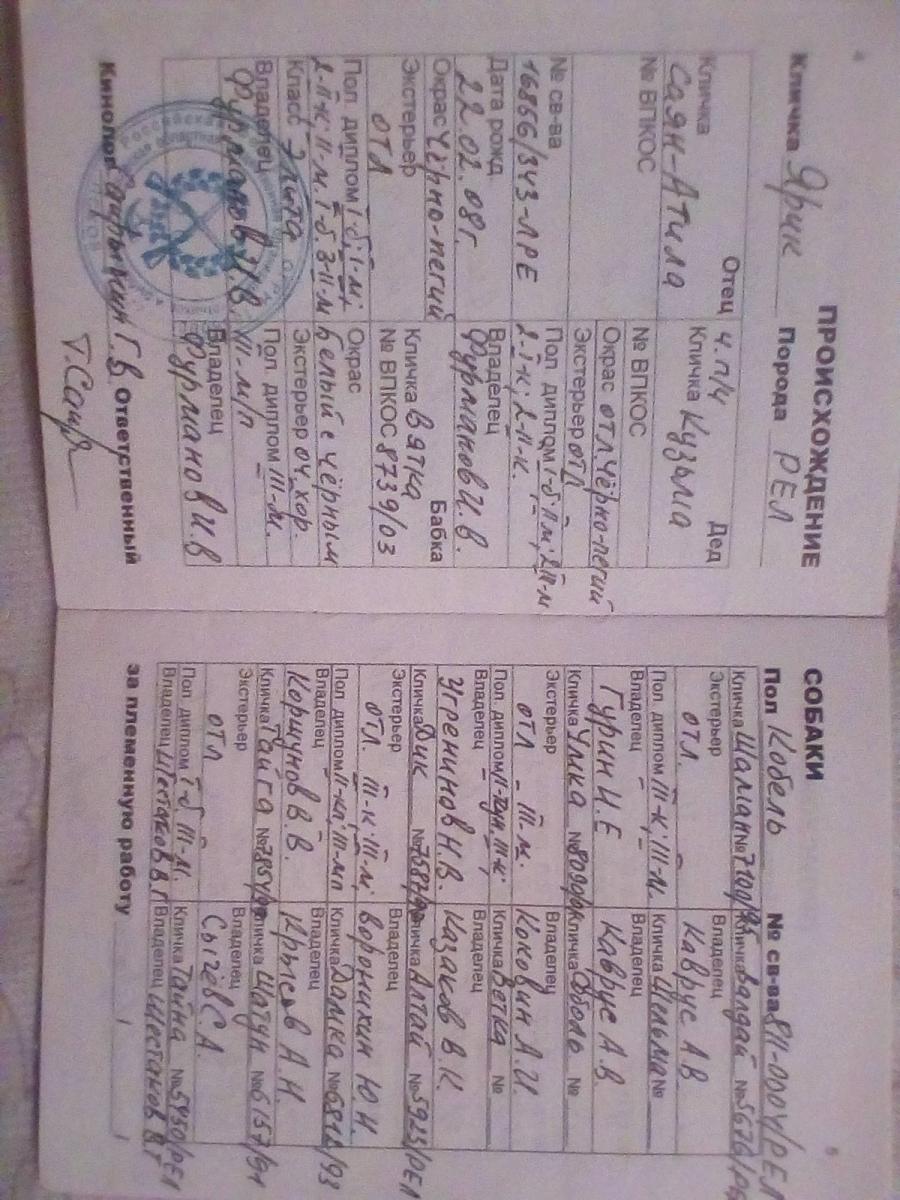 4
ПРОИСХОЖДЕНИЕ
Кличка Ярик Порода РЕЛ
Отец
Кличка
Саян-Атила
№ ВПКОС
№ св-ва
16866/343-ЛРЕ
Дата рожд
22.02.08г.
Окрас Чёрно-пегий
Экстерьер
отл
Пол. диплом I-б; I-м;
Класс Элита
Владелец
Фурманов И.В.
ч.п/ч Дед
Кличка Кузьма
№ ВПКОС
Окрас отл Чёрно-пегий
Экстерьер отл
Пол. диплом
2-I-к; 2-II-к.
Владелец
Фурманов И.В.
Бабка
Кличка Вятка
№ ВПКОС 8739/03
Окрас
Белый с чёрным
Экстерьер оч. хор.
Пол. диплом III-м.
III-м/п
Владелец
Фурманов И.В
Кинолог Г.В. Ответственный
СОБАКИ
5
Пол Кобель № св-ва
Кличка Шалман №
Экстерьер
отл.
Пол. диплом II-к; III-м.
Владелец
Гурин И.Е
Кличка Улика №
Экстерьер
отл III-м.
Пол. диплом
Владелец
Угренинов Н.В.
Кличка Дик №
Экстерьер
отл. III-к; III-м;
Пол. диплом
Владелец
Коршунов В.В.
Кличка Тайга №
Экстерьер
отл
Пол. диплом I-б III-м.
Владелец Шестаков В.Г
Кличка Валдай №
Владелец
Каврус А.В
Кличка Шельма №
Владелец
Каврус А.В
Кличка Соболь №
Владелец
Коковин А.И.
Кличка Ветка №
Владелец
Казаков В.К.
Кличка Алтай № 5923/РЕЛ
Владелец
Воронихин Ю Н.
Кличка Дамка №
Владелец
Крысов А.Н.
Кличка Шатун № 6157/91
Владелец
Сычёв С.А.
Кличка Тайна № 5450/РЕЛ
Владелец Шестаков В.Г
за племенную работу